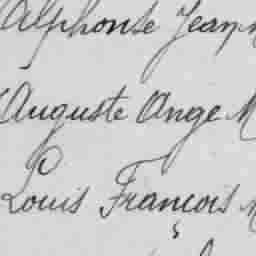 Alphonse Jean
Auguste Ange M
Louis François